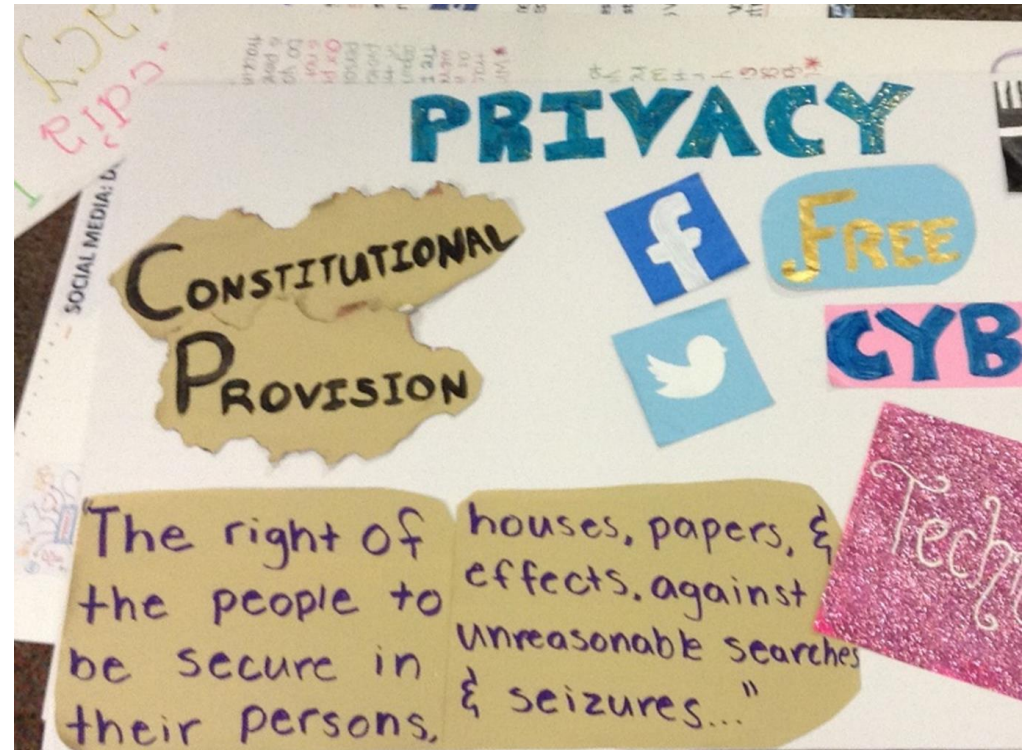 PRIVACY
SOCIAL MEDIA:
CONSTITUTIONAL
PROVISION
f
FREE
CYB
Tech
"The right of
the people to
be secure in
their persons,
houses, papers, &
effects, against
unreasonable searches
& seizures..."